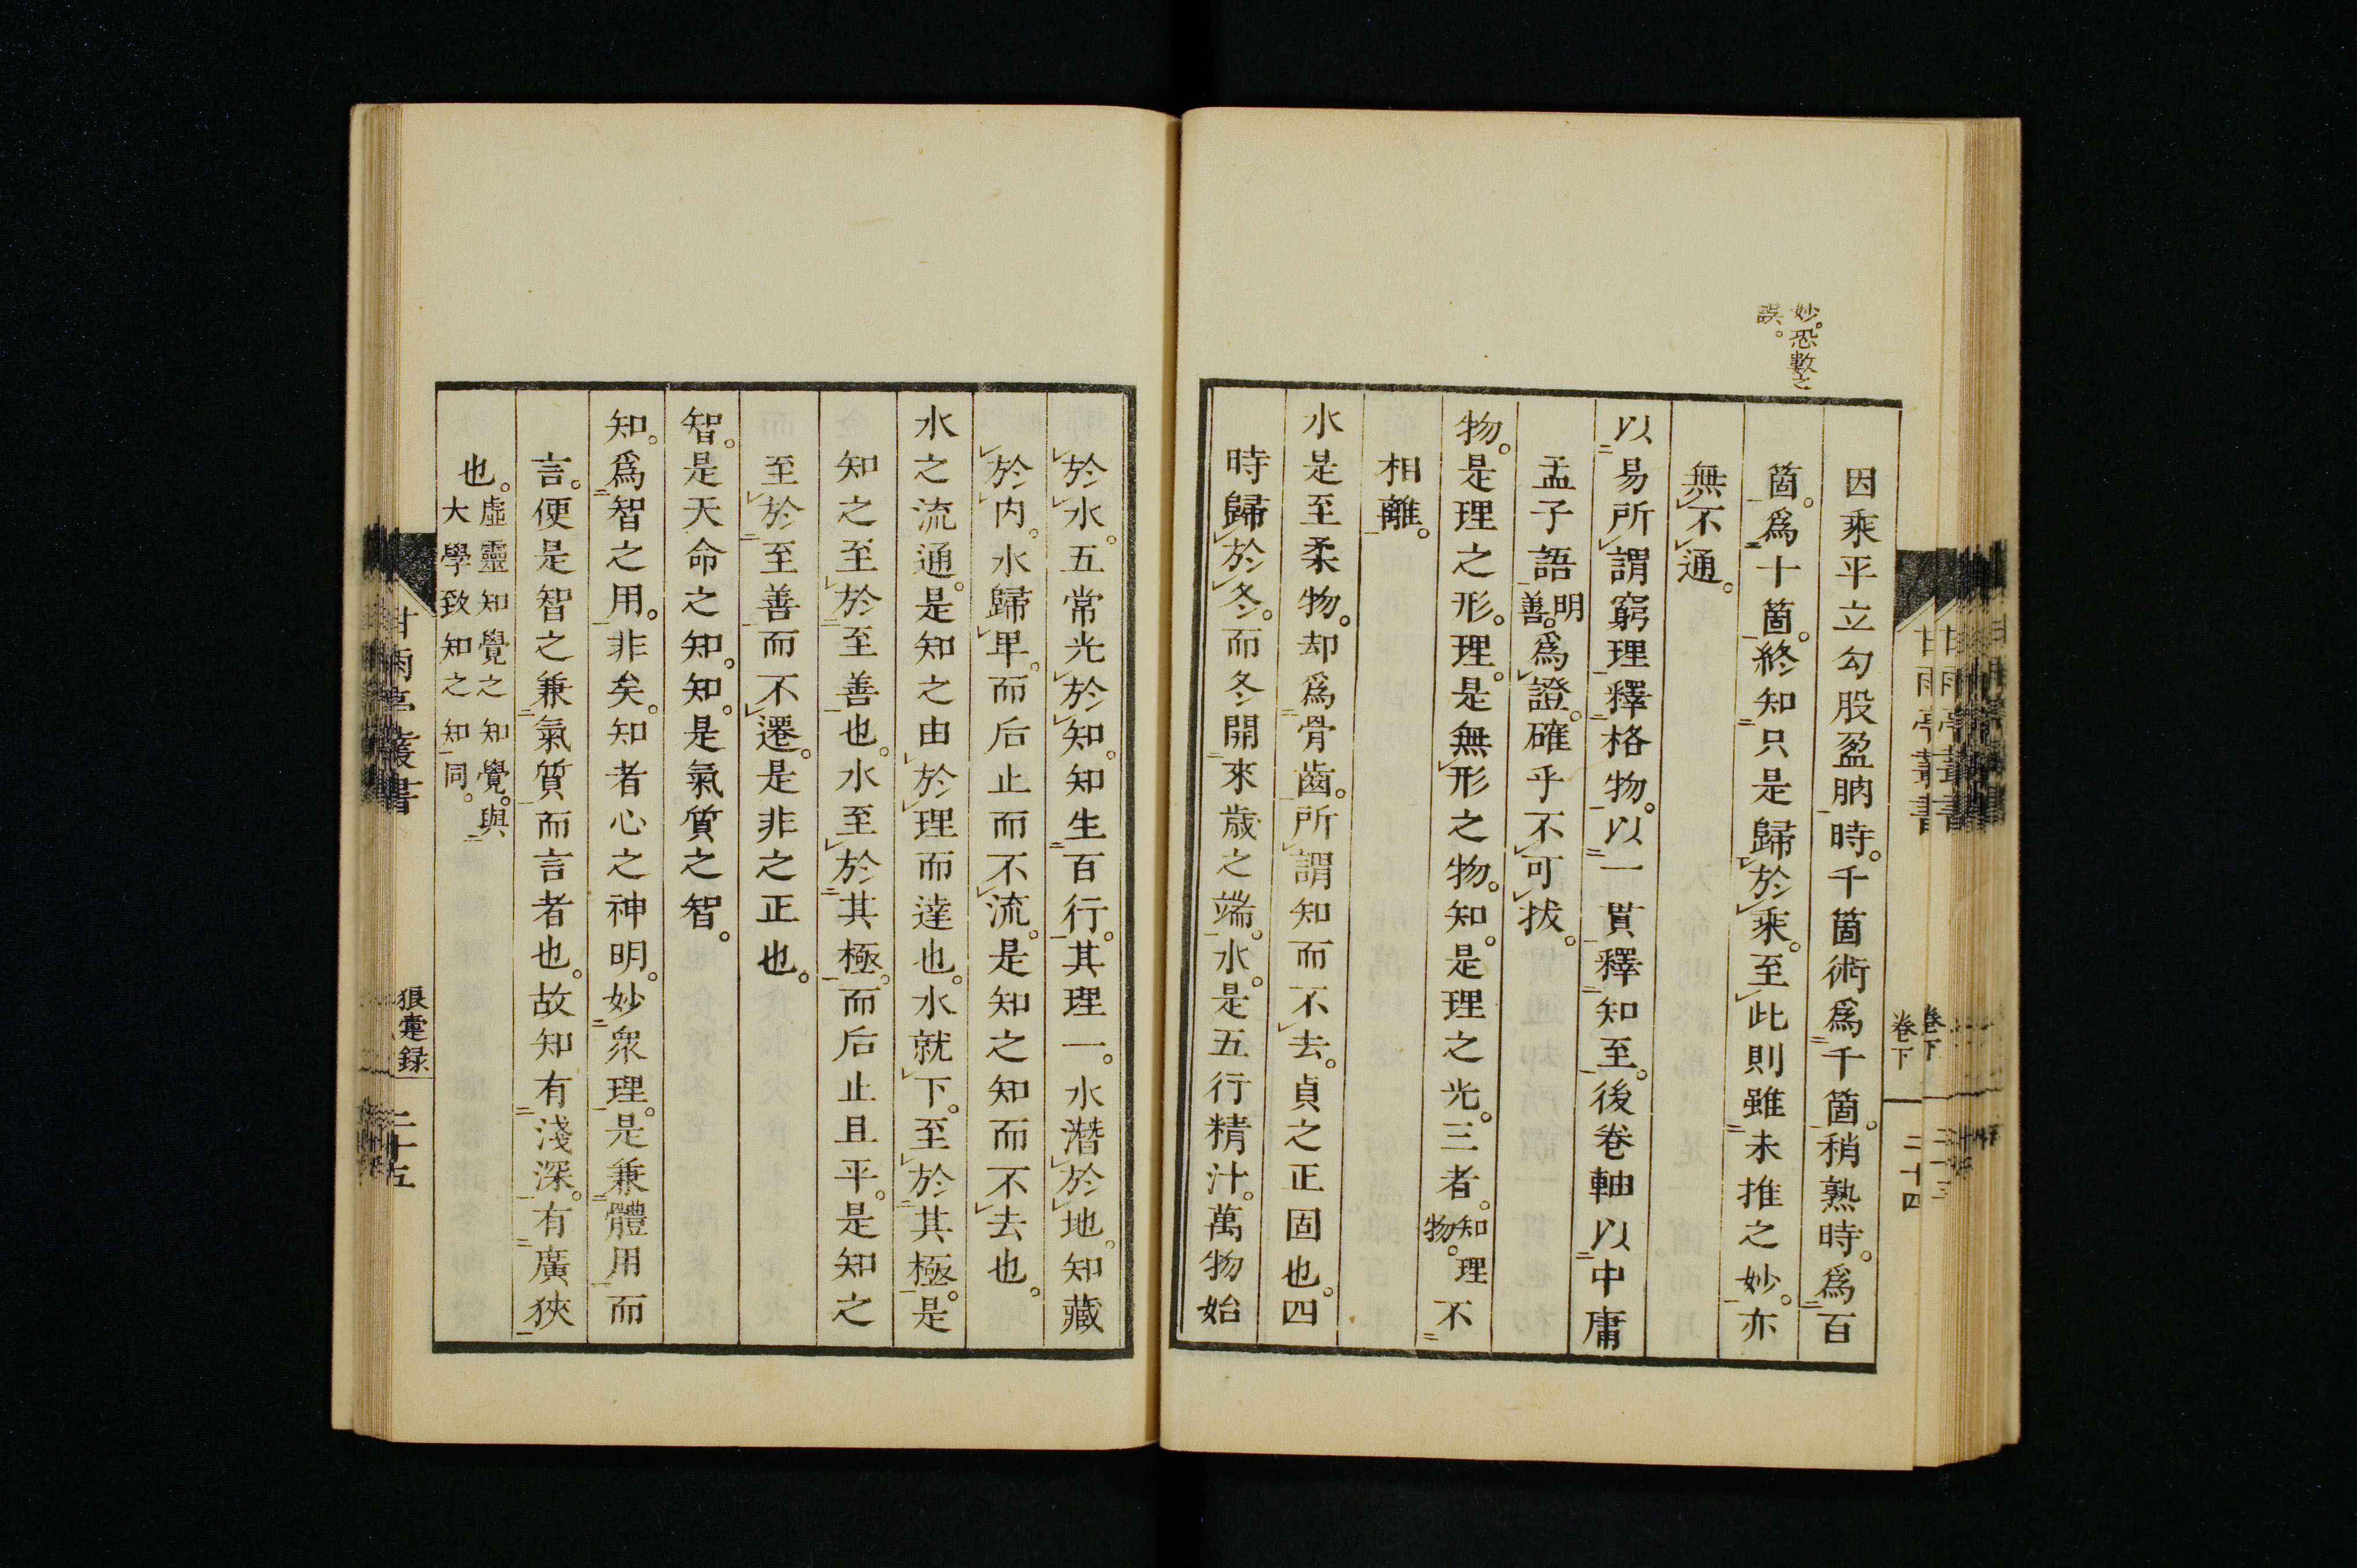 妙。恐數之
誤。
因乘平立勾股盈朒時。千箇術爲千箇。稍熟時。爲百
箇。爲十箇。終知只是歸於乘。至此則雖未推之妙。亦
無不通。
以易所謂窮理釋格物。以一貫釋知至。後卷軸以中庸
孟子語明善。爲證。確乎不可拔。
物。是理之形。理。是無形之物。知。是理之光。三者。知理物。不
相離。
水是至柔物。却爲骨齒。所謂知而不去。貞之正固也。四
時歸於冬。而冬開來歲之端。水。是五行精汁。萬物始
甘雨亭叢書
卷下
二十四
於水。五常光於知。知生百行。其理一。水潛於地。知藏
於內。水歸卑。而后止而不流。是知之知而不去也。
水之流通。是知之由於理而達也。水就下。至於其極。是
知之至於至善也。水至於其極。而后止且平。是知之
至於至善而不遷。是非之正也。
智。是天命之知。知。是氣質之智。
知。爲智之用。非矣。知者心之神明。妙衆理。是兼體用而
言。便是智之兼氣質而言者也。故知有淺深。有廣狹
也。虛靈知覺之知覺。與
大學致知之知同。
甘雨亭叢書
狼疐錄
二十五